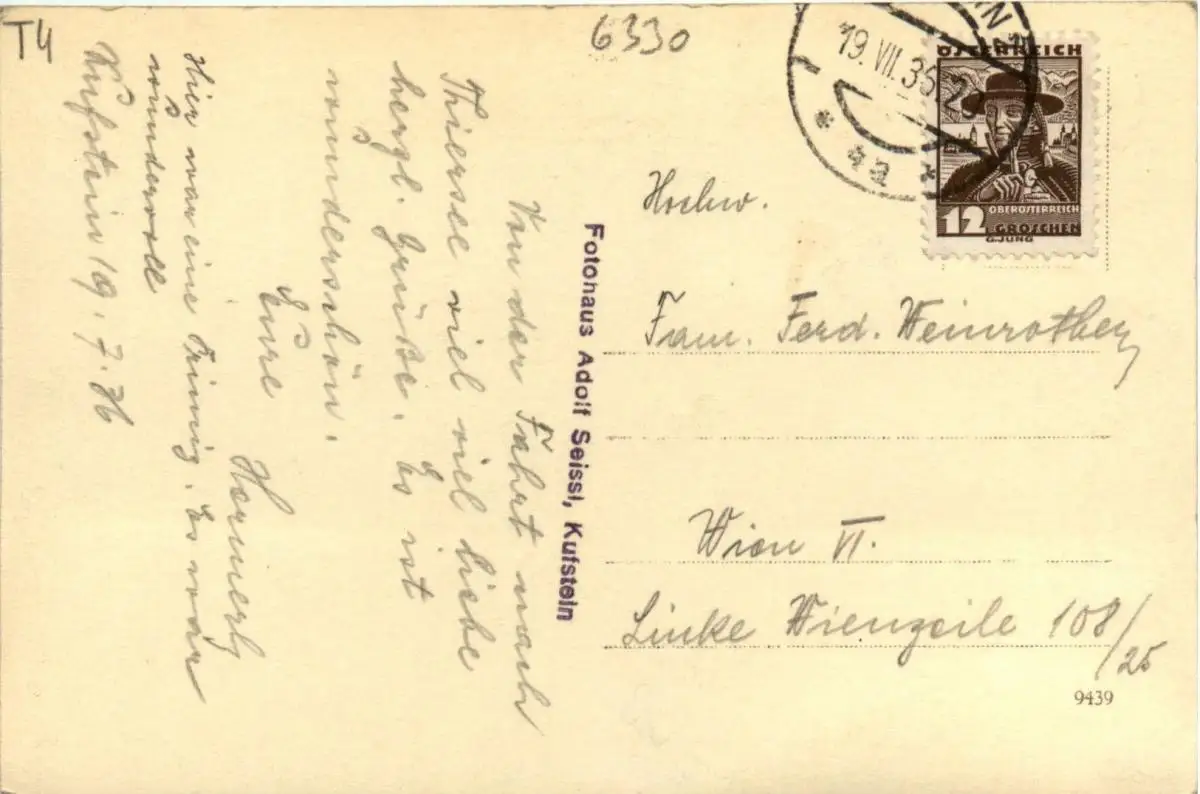 T4
6330
19.VII.36
ÖSTERREICH
12
OBERÖSTERREICH
GROSCHEN
G.JUNG
Von der Fahrt nach
Thiersee viel viel liebe
herzl. Grüße. Es ist
wunderschön.
Eure
Hier war eine Trinnig. Es war
wundervoll
Kufstein 19.7.36
Fotohaus Adolf Seissl, Kufstein
Hochw.
Fam. Ferd. Weinrother
Wien VI.
Linke Wienzeile 108/25
9439